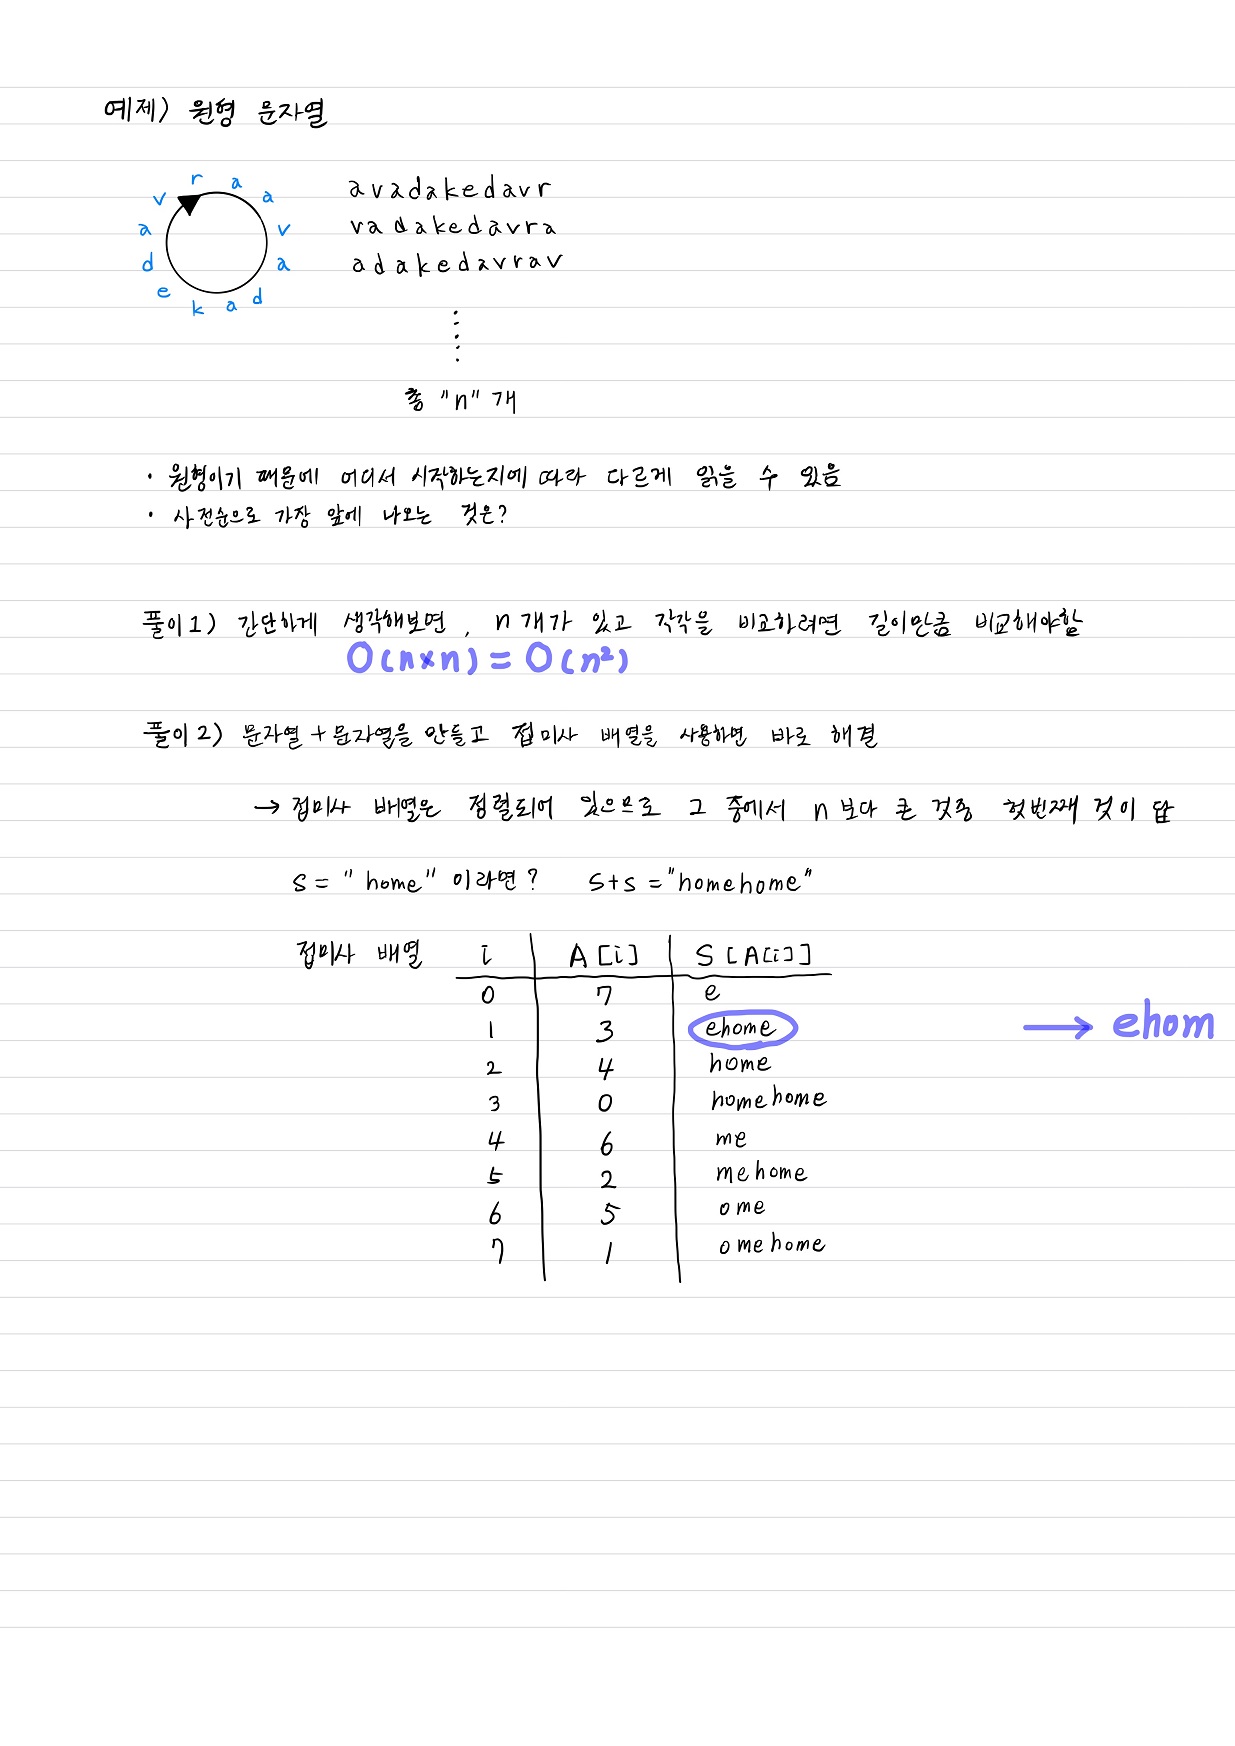 예제) 원형 문자열
r a a v a d a k e d a v
avadakedavr
vadakedavra
adakedavrav
총 "n" 개
· 원형이기 때문에 어디서 시작하는지에 따라 다르게 읽을 수 있음
· 사전순으로 가장 앞에 나오는 것은?
풀이1) 간단하게 생각해보면, n개가 있고 각각을 비교하려면 길이만큼 비교해야함
O(n×n) = O(n²)
풀이2) 문자열 + 문자열을 만들고 접미사 배열을 사용하면 바로 해결
→ 접미사 배열은 정렬되어 있으므로 그 중에서 n보다 큰 것중 첫번째 것이 답
s = "home" 이라면? s+s = "homehome"
접미사 배열 i A[i] S[A[i]]
0 7 e
1 3 ehome → ehom
2 4 home
3 0 homehome
4 6 me
5 2 mehome
6 5 ome
7 1 omehome